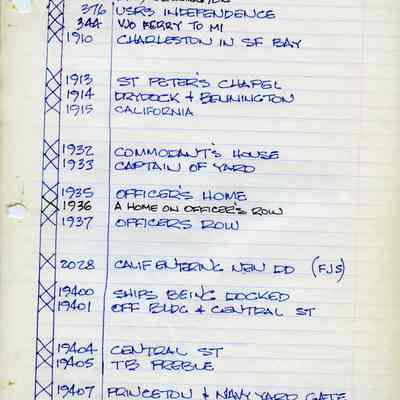 376 USRS INDEPENDENCE
344 V/O FERRY TO MI
1910 CHARLESTON IN SF BAY
1913 ST PETER'S CHAPEL
1914 DRYDOCK & BENNINGTON
1915 CALIFORNIA
1932 COMMODANT'S HOUSE
1933 CAPTAIN OF YARD
1935 OFFICER'S HOME
1936 A HOME ON OFFICER'S ROW
1937 OFFICERS ROW
2028 CALIF ENTERING NEW DD (FJS)
19400 SHIPS BEING DOCKED
19401 OFF BLDG & CENTRAL ST
19404 CENTRAL ST
19405 TB PREBLE
19407 PRINCETON & NAVY YARD GATE